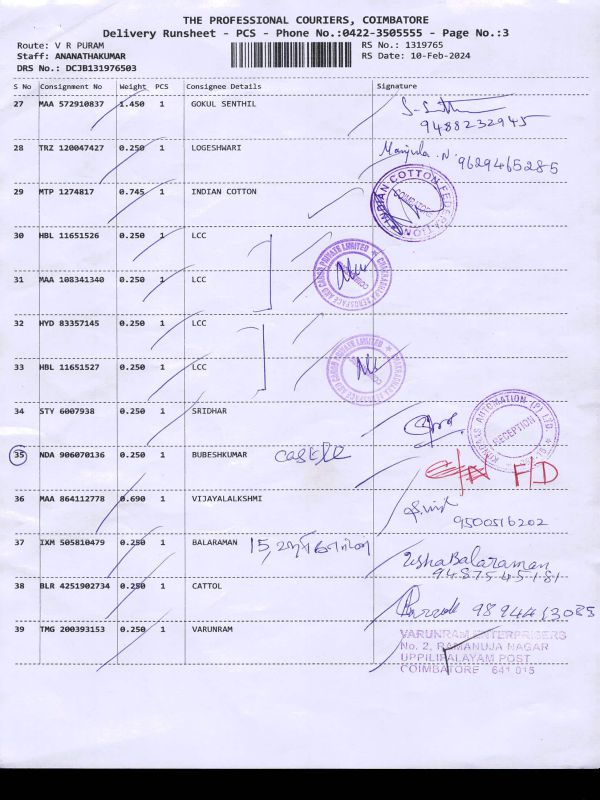 THE PROFESSIONAL COURIERS, COIMBATORE
Delivery Runsheet - PCS - Phone No.:0422-3505555 - Page No.:3
Route: V R PURAM
RS No.: 1319765
Staff: ANANATHAKUMAR
RS Date: 10-Feb-2024
DRS No.: DCJB131976503
S No Consignment No Weight PCS Consignee Details Signature
27 MAA 572910837 1.450 1 GOKUL SENTHIL
9488232945
28 TRZ 120047427 0.250 1 LOGESHWARI Manjula.N. 9629465285
29 MTP 1274817 0.745 1 INDIAN COTTON
INDIAN COTTON FEDERATION
COIMBATORE
30 HBL 11651526 0.250 1 LCC
31 MAA 108341340 0.250 1 LCC
32 HYD 83357145 0.250 1 LCC
33 HBL 11651527 0.250 1 LCC
34 STY 6007938 0.250 1 SRIDHAR
AUTOMATION (P) LTD.
RECEPTION
35 NDA 906070136 0.250 1 BUBESHKUMAR F/D
36 MAA 864112778 0.690 1 VIJAYALALKSHMI
9500516202
37 IXM 505810479 0.250 1 BALARAMAN 15, UshaBalaraman
9487545181
38 BLR 4251902734 0.250 1 CATTOL
39 TMG 200393153 0.250 1 VARUNRAM
VARUNRAM ENTERPRISERS
No. 2, RAMANUJA NAGAR
UPPILIPALAYAM POST
COIMBATORE 641 015